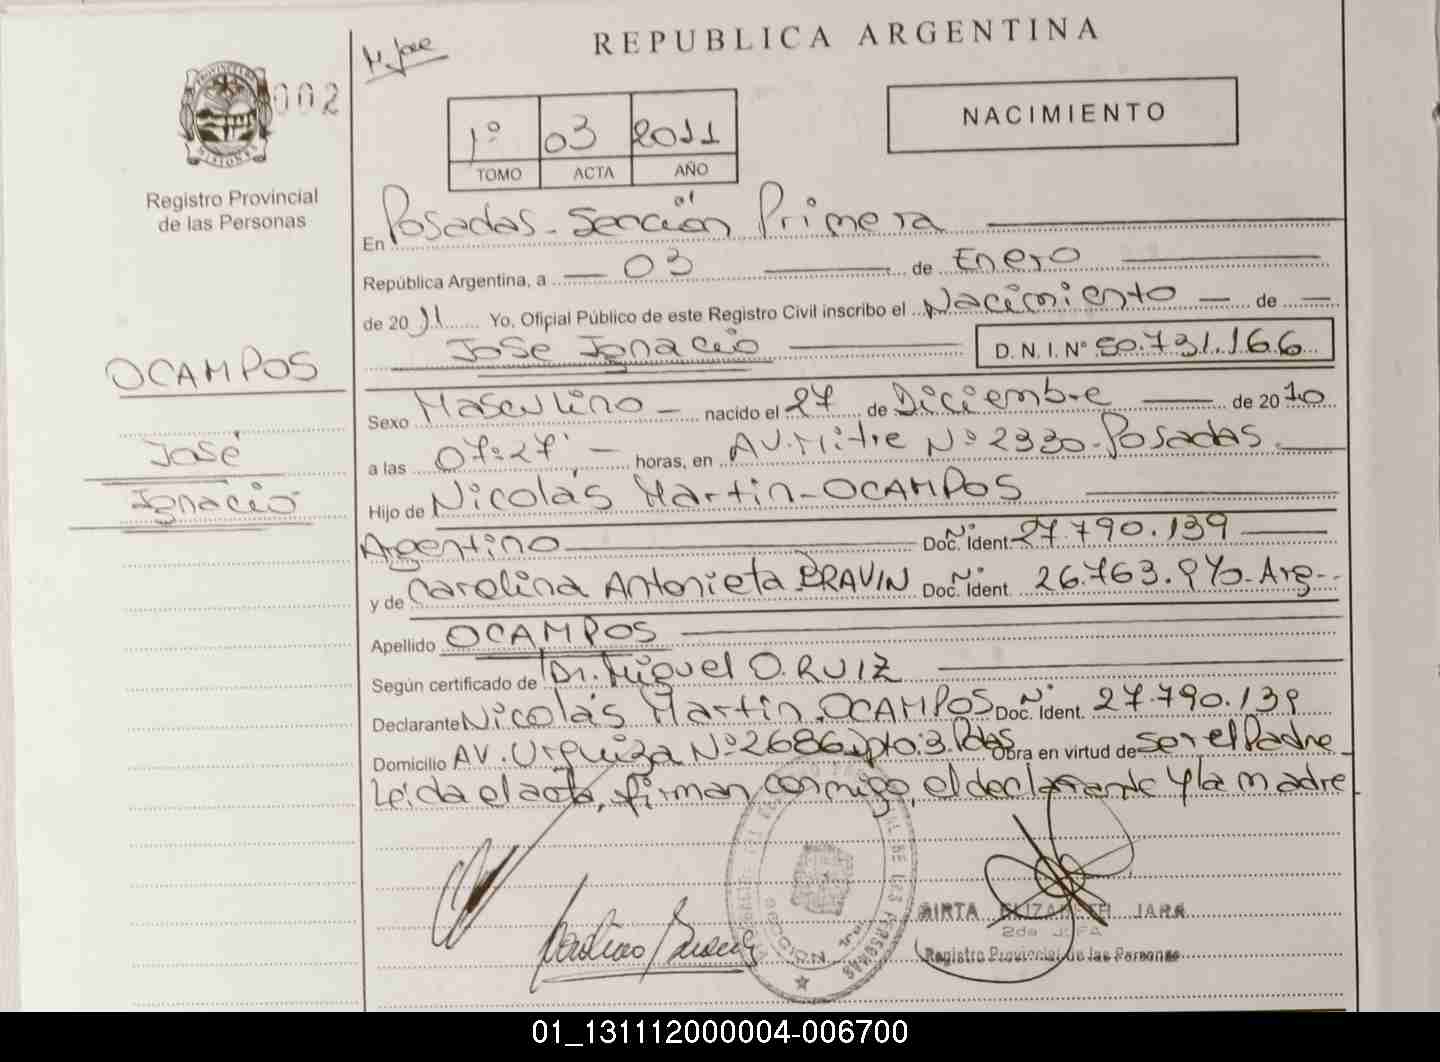 REPUBLICA ARGENTINA
002
Registro Provincial
de las Personas
1º 03 2011
TOMO ACTA AÑO
NACIMIENTO
En Posadas - Sección Primera
República Argentina, a 03 de Enero
de 2011 Yo, Oficial Público de este Registro Civil inscribo el Nacimiento de
José Ignacio D. N. I. Nº 50.731.166
OCAMPOS
José
Ignacio
Sexo Masculino nacido el 27 de Diciembre de 2010
a las 07:27 horas, en AV. Mitre Nº 2330 - Posadas.
Hijo de Nicolás Martín - OCAMPOS
Argentino Doc. Ident. Nº 27.790.139
y de Carolina Antonieta BRAVIN Doc. Ident. Nº 26.763.940 - Arg -
Apellido OCAMPOS
Según certificado de Dr. Miguel O. RUIZ
Declarante Nicolás Martín OCAMPOS Doc. Ident. Nº 27.790.139
Domicilio AV. Urquiza Nº 2686 Dpto: 3. Pdas Obra en virtud de Ser el Padre
Leída el acta, firman conmigo, el declarante y la madre
MIRTA ELIZABETH JARA
2da JEFA
Registro Provincial de las Personas
01_131112000004-006700